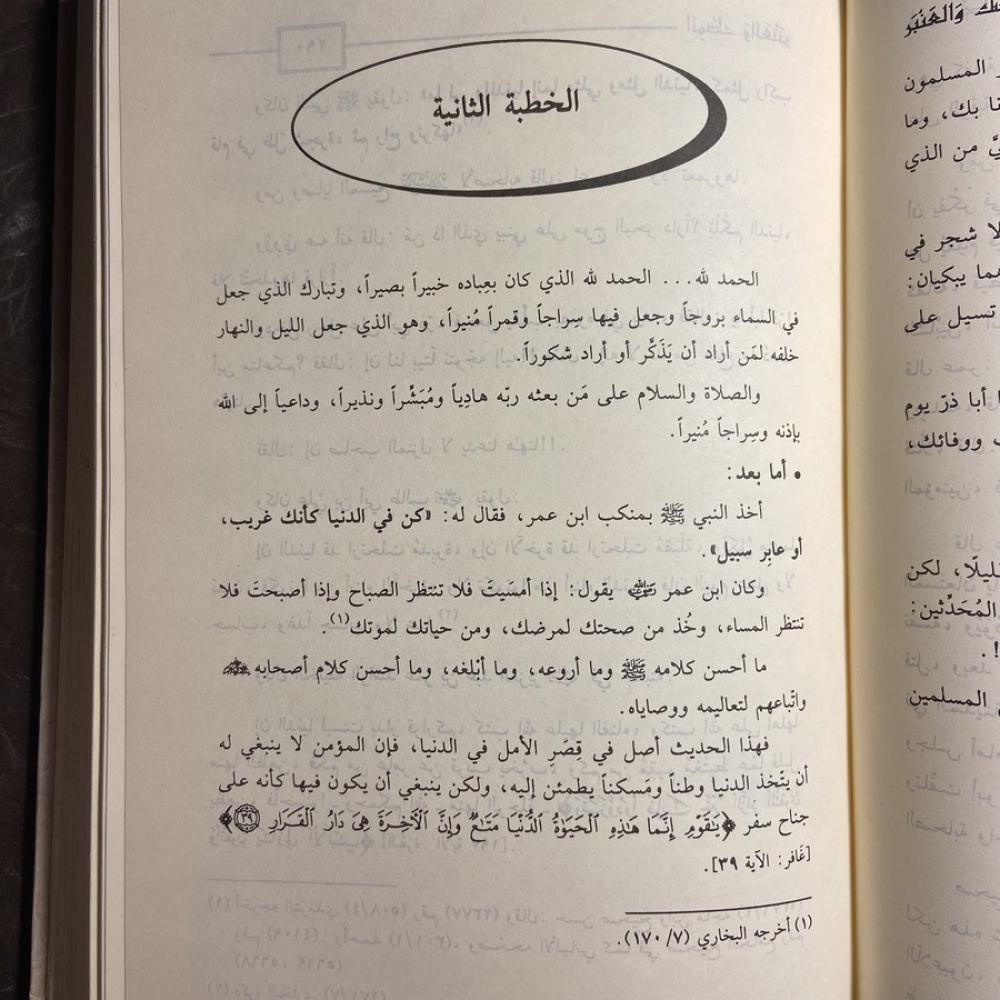 الخطبة الثانية
الحمد لله... الحمد لله الذي كان بعِباده خبيراً بصيراً، وتبارك الذي جعل
في السماء بروجاً وجعل فيها سِراجاً وقمراً مُنيراً، وهو الذي جعل الليل والنهار
خلفه لمَن أراد أن يَذَكَّر أو أراد شكوراً.
والصلاة والسلام على مَن بعثه ربّه هادِياً ومُبَشِّراً ونذيراً، وداعياً إلى الله
بإذنه وسِراجاً مُنيراً.
• أما بعد:
أخذ النبي ﷺ بمنكب ابن عمر، فقال له: «كن في الدنيا كأنك غريب،
أو عابِر سبيل».
وكان ابن عمر يقول: إذا أمسَيتَ فلا تنتظر الصباح وإذا أصبحتَ فلا
تنتظر المساء، وخُذ من صحتك لمرضك، ومن حياتك لموتك(١).
ما أحسن كلامه ﷺ وما أروعه، وما أبْلغه، وما أحسن كلام أصحابه
واتّباعهم لتعاليمه ووصاياه.
فهذا الحديث أصل في قِصَر الأمل في الدنيا، فإن المؤمن لا ينبغي له
أن يتّخذ الدنيا وطناً ومَسكناً يطمئن إليه، ولكن ينبغي أن يكون فيها كأنه على
جناح سفر ﴿يَـٰقَوْمِ إِنَّمَا هَـٰذِهِ ٱلْحَيَوٰةُ ٱلدُّنْيَا مَتَـٰعٌ وَإِنَّ ٱلْأَخِرَةَ هِىَ دَارُ ٱلْقَرَارِ ٣٩﴾
[غَافر: الآية ٣٩].
(١) أخرجه البخاري (٧/ ١٧٠).
المسلمون
بك، وما
من الذي
لا شجر في
يبكيان:
تسيل على
أبا ذرّ يوم
ووفائك،
لكن
المُحَدِّثين:
المسلمين